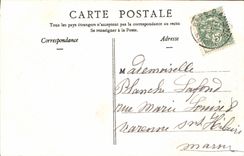 CARTE POSTALE
Tous les pays étrangers n'acceptent pas la correspondance au recto
Se renseigner à la Poste.
Correspondance
Adresse
Mademoiselle
Blanche Lafond
rue Marie Louise
Varenne St Hilaire